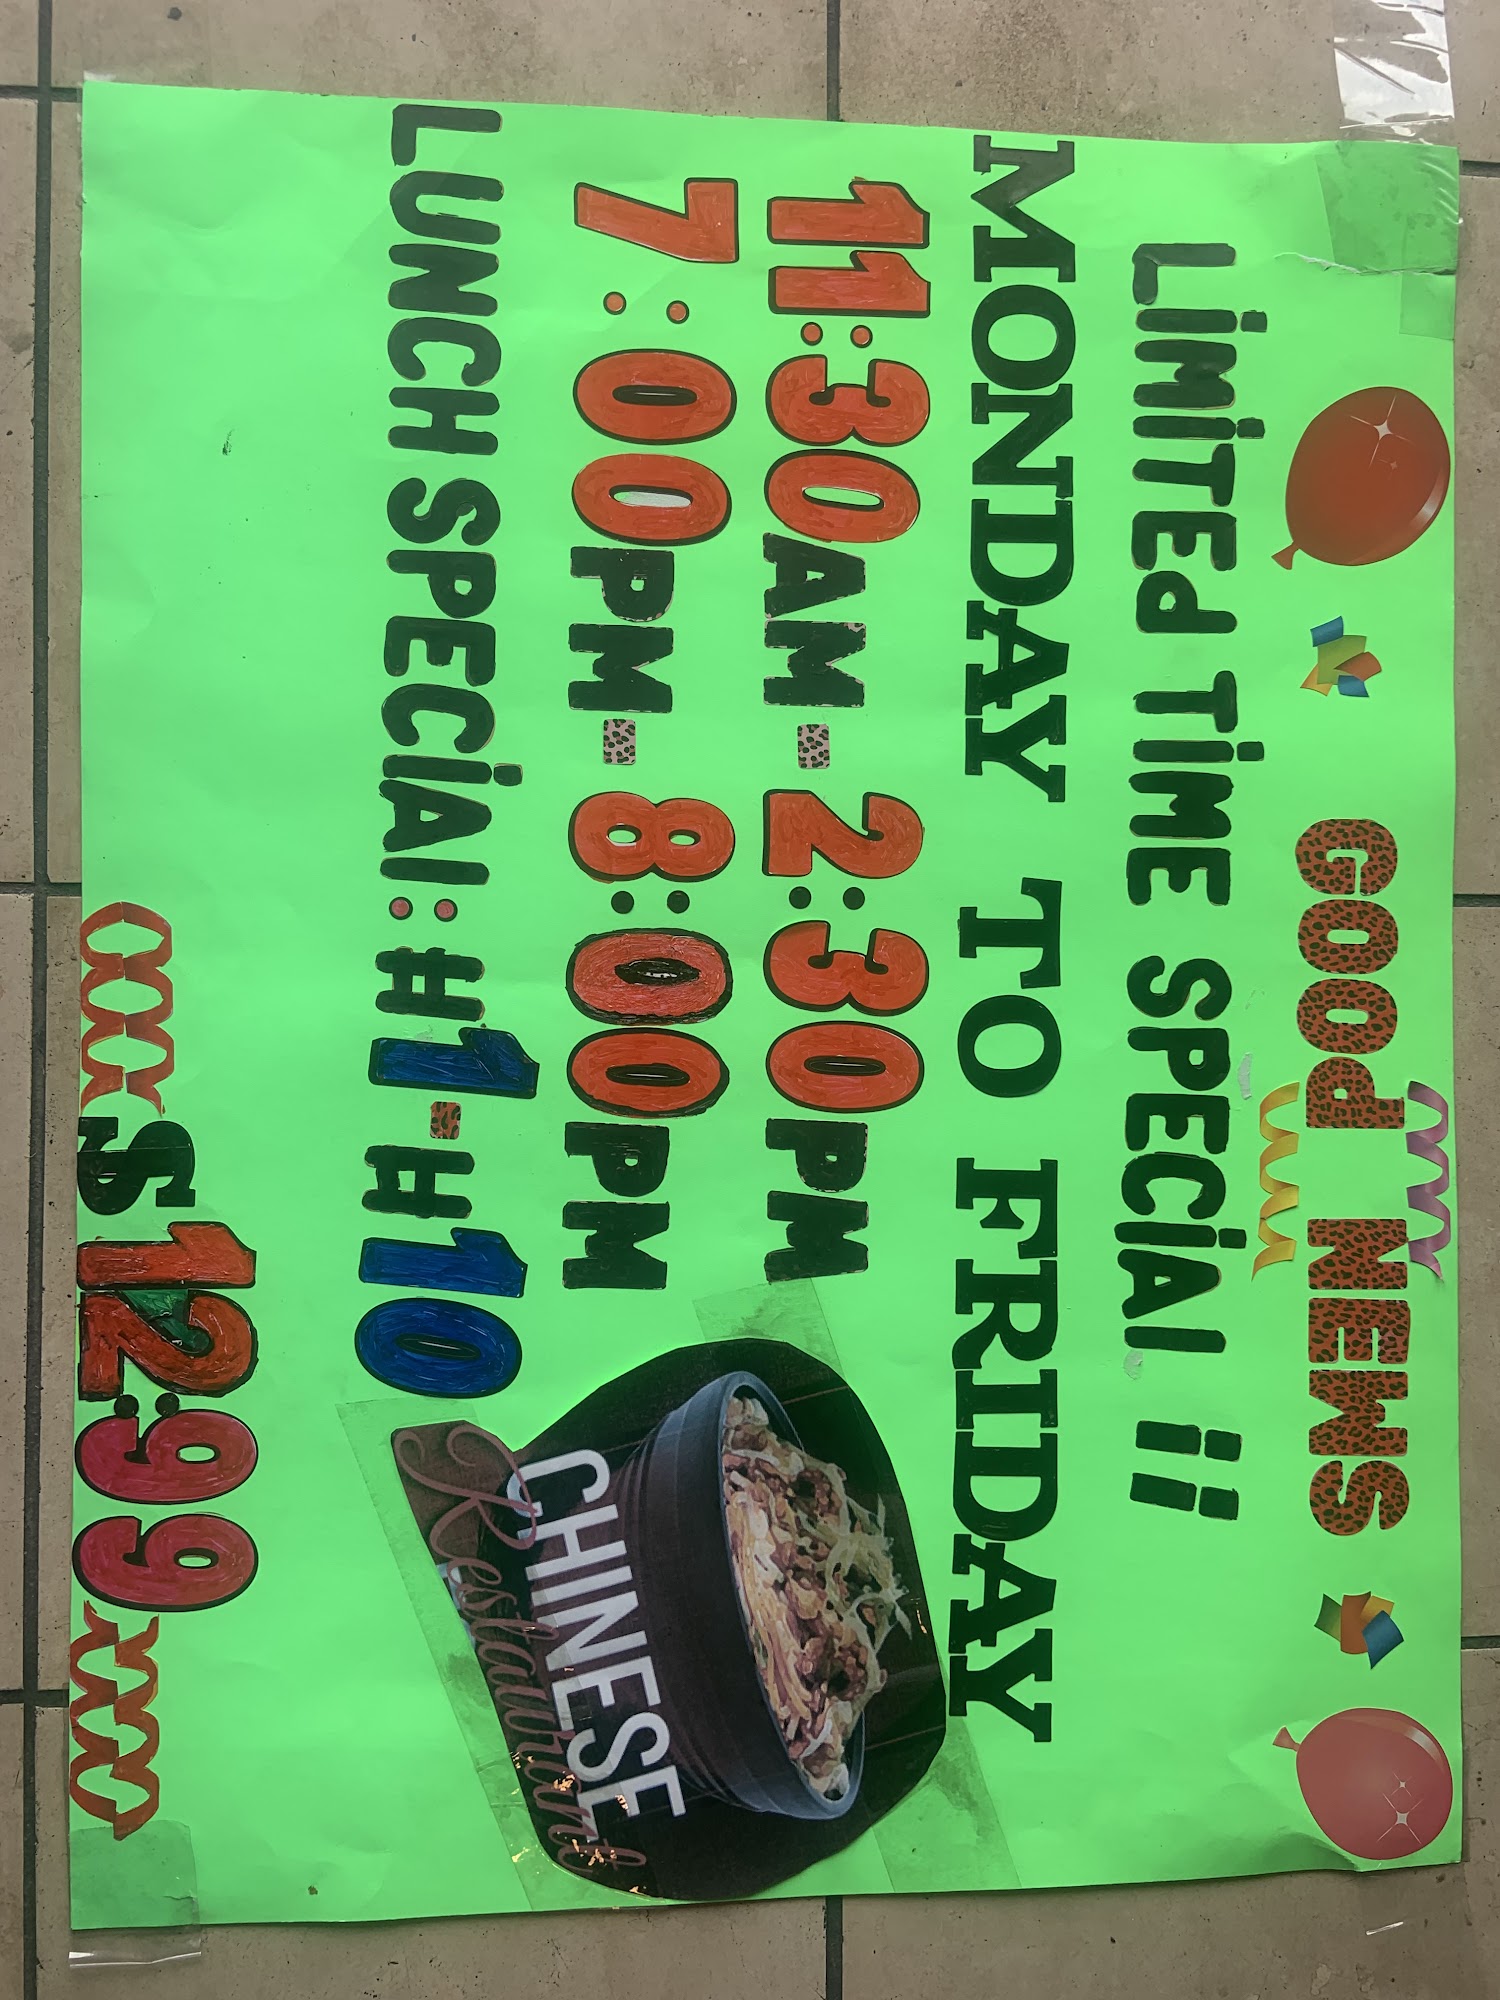 GOOd NEWS
LiMiTEd TiME SPECiAl !!
MONDAY TO FRIDAY
11:30AM-2:30PM
7:00PM-8:00PM
LUNCH SPECiAl:#1-#10
$12:99
CHINESE
Restaurant